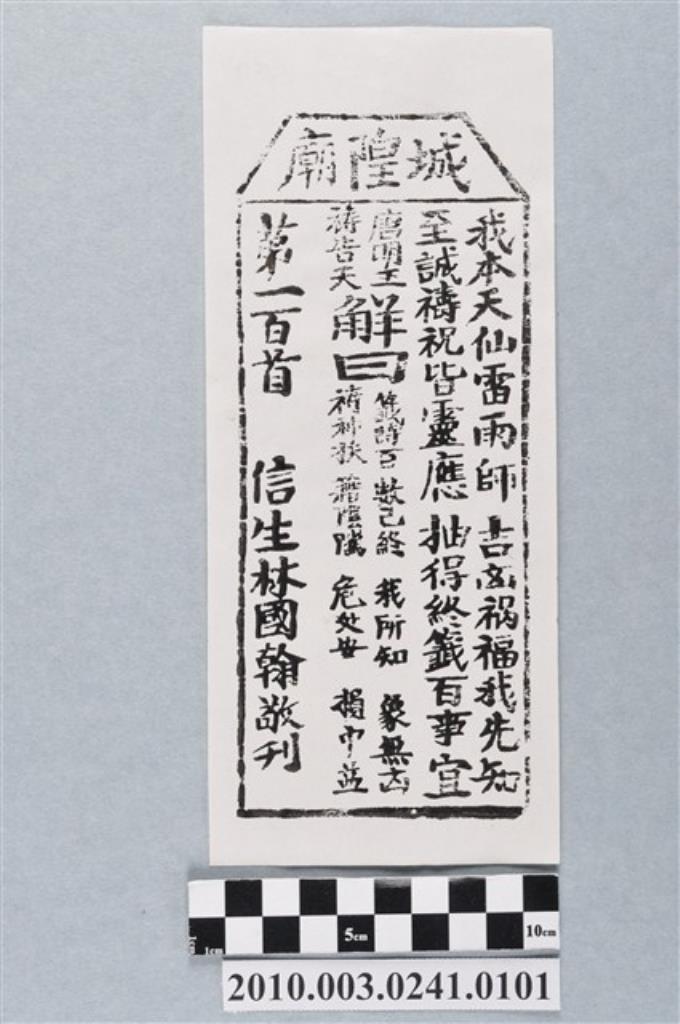 城隍廟
我本天仙雷雨師　吉凶禍福我先知
至誠禱祝皆靈應　抽得終籤百事宜
唐明王禱告天
解曰
籤詩百數已終　我所知　象無凶
禱神扶　籍陰隲　危處安　損中益
第一百首　信生林國翰敬刊
1cm
5cm
10cm
2010.003.0241.0101